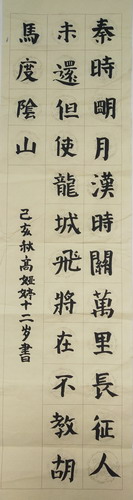 秦時明月漢時關萬里長征人
未還但使龍城飛將在不教胡
馬度陰山
己亥秋高婭婷十二岁書